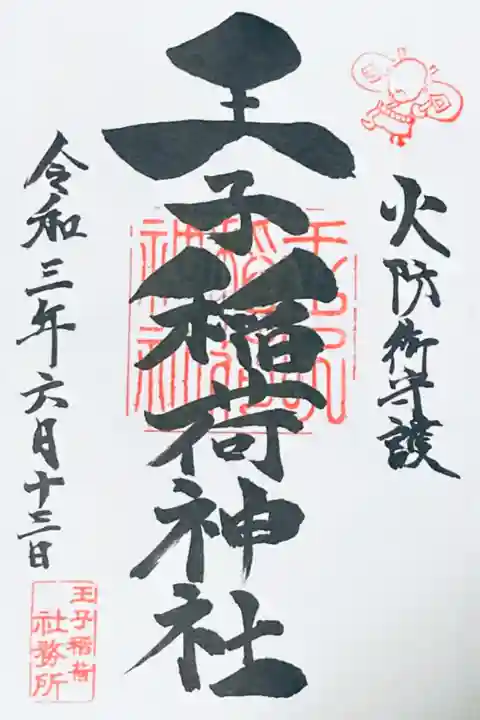 火防御守護
王子稲荷神社
令和三年六月十三日
王子稲荷
社務所